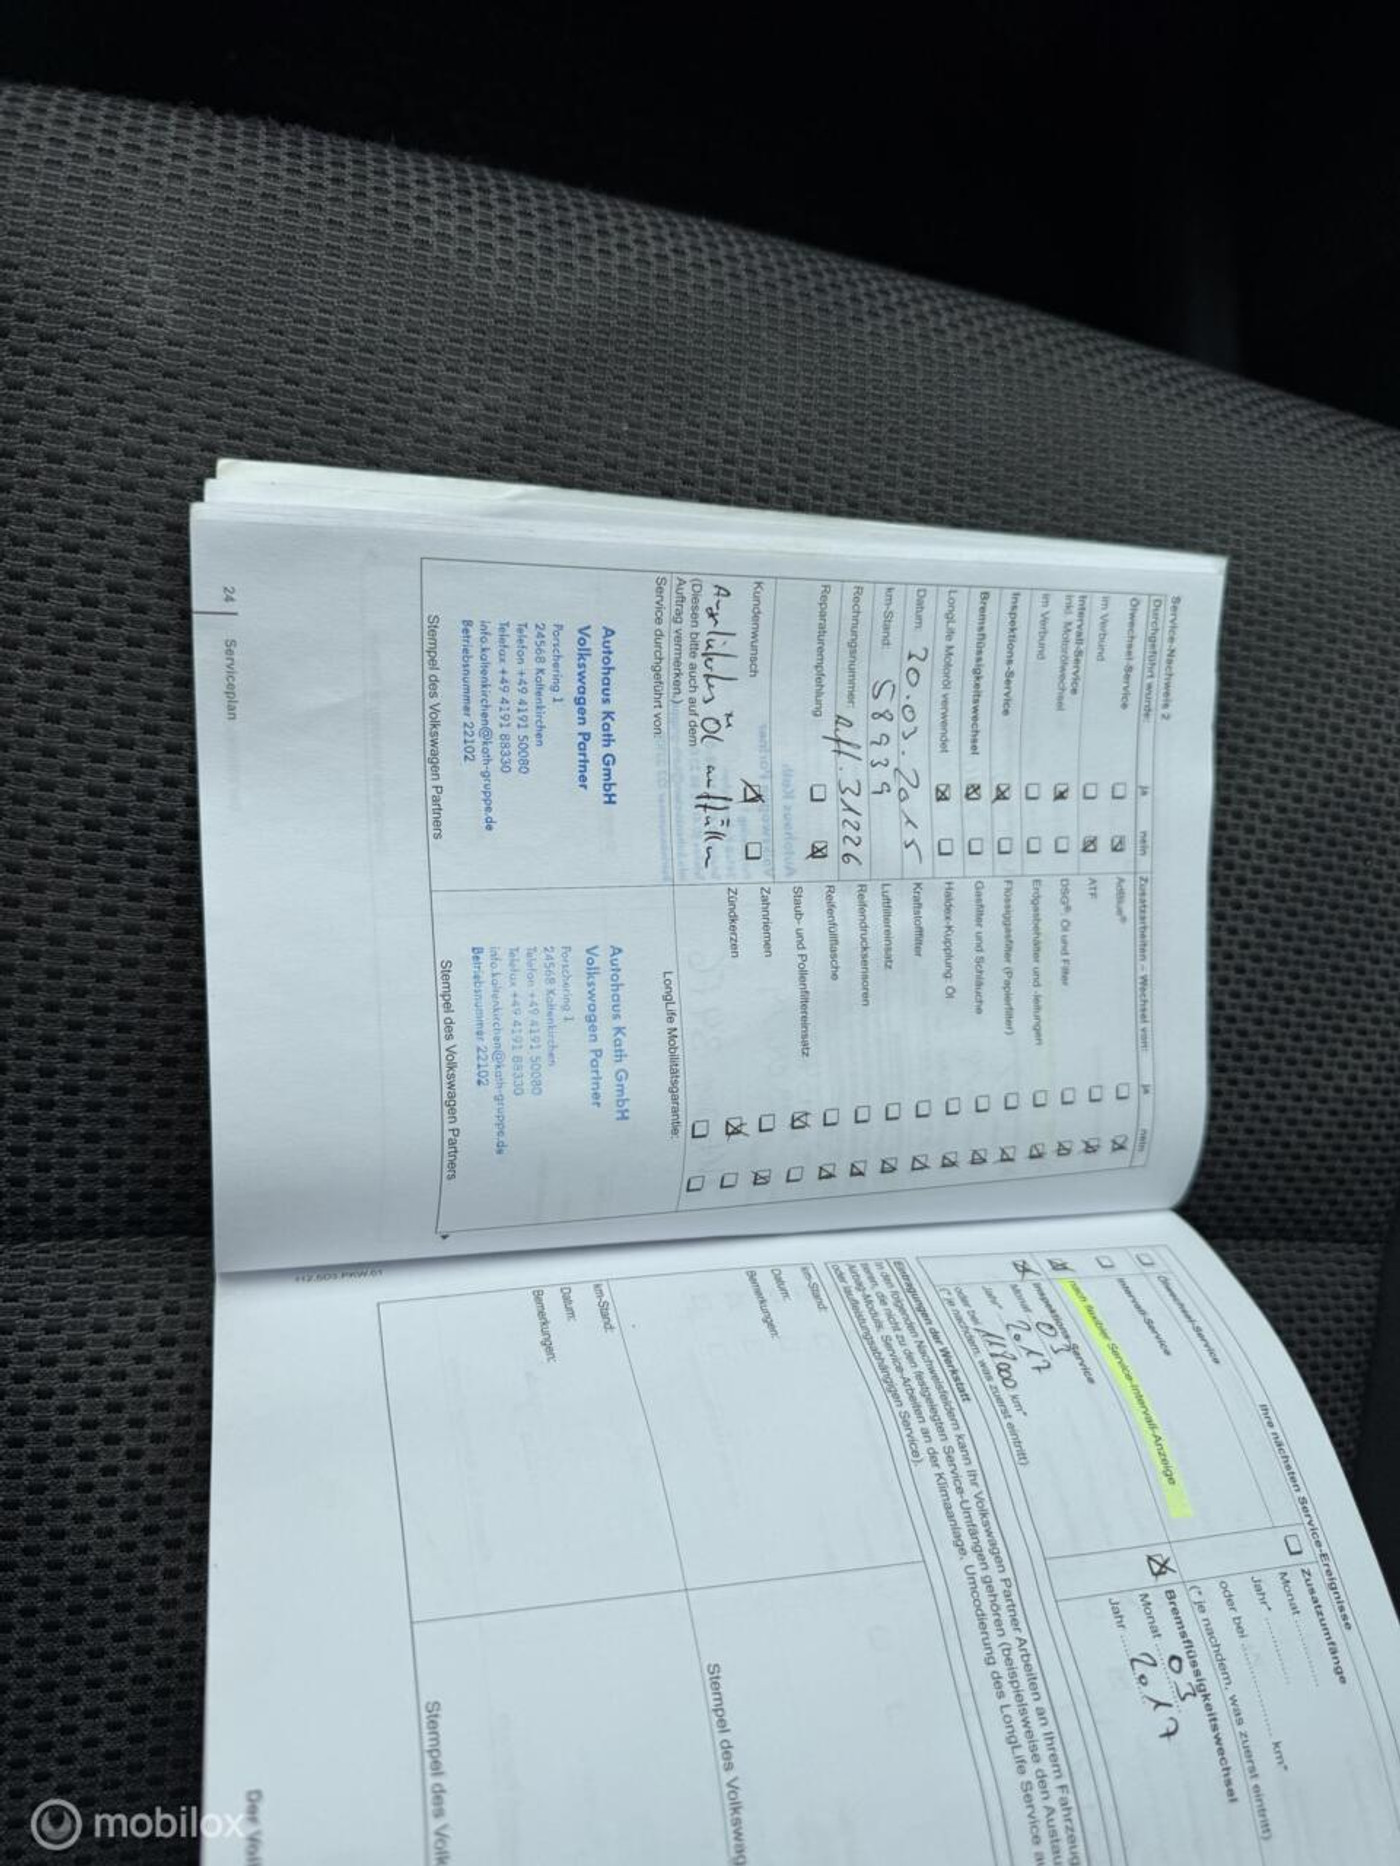 Service-Nachweis 2
Durchgeführt wurde: ja nein
Ölwechsel-Service
im Verbund
Intervall-Service
inkl. Motorölwechsel
im Verbund
Inspektions-Service
Bremsflüssigkeitswechsel
LongLife Motoröl verwendet
Datum: 20.03.2015
km-Stand: 58939
Rechnungsnummer: 31226
Reparaturempfehlung
Kundenwunsch
Öl auffüllen
(Diesen bitte auch auf dem
Auftrag vermerken.)
Service durchgeführt von:
Autohaus Kath GmbH
Volkswagen Partner
Porschering 1
24568 Kaltenkirchen
Telefon +49 4191 50080
Telefax +49 4191 88330
info.kaltenkirchen@kath-gruppe.de
Betriebsnummer 22102
Stempel des Volkswagen Partners
Zusatzarbeiten – Wechsel von: ja nein
AdBlue®
ATF
DSG®: Öl und Filter
Erdgasbehälter und -leitungen
Flüssiggasfilter (Papierfilter)
Gasfilter und Schläuche
Haldex-Kupplung: Öl
Kraftstofffilter
Luftfiltereinsatz
Reifendrucksensoren
Reifenfüllflasche
Staub- und Pollenfiltereinsatz
Zahnriemen
Zündkerzen
LongLife Mobilitätsgarantie:
Autohaus Kath GmbH
Volkswagen Partner
Porschering 1
24568 Kaltenkirchen
Telefon +49 4191 50080
Telefax +49 4191 88330
info.kaltenkirchen@kath-gruppe.de
Betriebsnummer 22102
Stempel des Volkswagen Partners
24 Serviceplan
Ihre nächsten Service-Ereignisse
Ölwechsel-Service
Intervall-Service
nach flexibler Service-Intervall-Anzeige
Inspektions-Service
Monat* 03
Jahr* 2017
oder bei 118000 km*
(* je nachdem, was zuerst eintritt)
Zusatzumfänge
Monat
Jahr*
oder bei km*
(* je nachdem, was zuerst eintritt)
Bremsflüssigkeitswechsel
Monat 03
Jahr 2017
Eintragungen der Werkstatt
In den folgenden Nachweisfeldern kann Ihr Volkswagen Partner Arbeiten an Ihrem Fahrzeug
die nicht zu den festgelegten Service-Umfängen gehören (beispielsweise den Austau
Airbag-Moduls, Service-Arbeiten an der Klimaanlage, Umcodierung des LongLife Service a
oder laufleistungsabhängigen Service).
km-Stand:
Datum:
Bemerkungen:
Stempel des Volkswag
km-Stand:
Datum:
Bemerkungen:
Stempel des Volk
mobilox